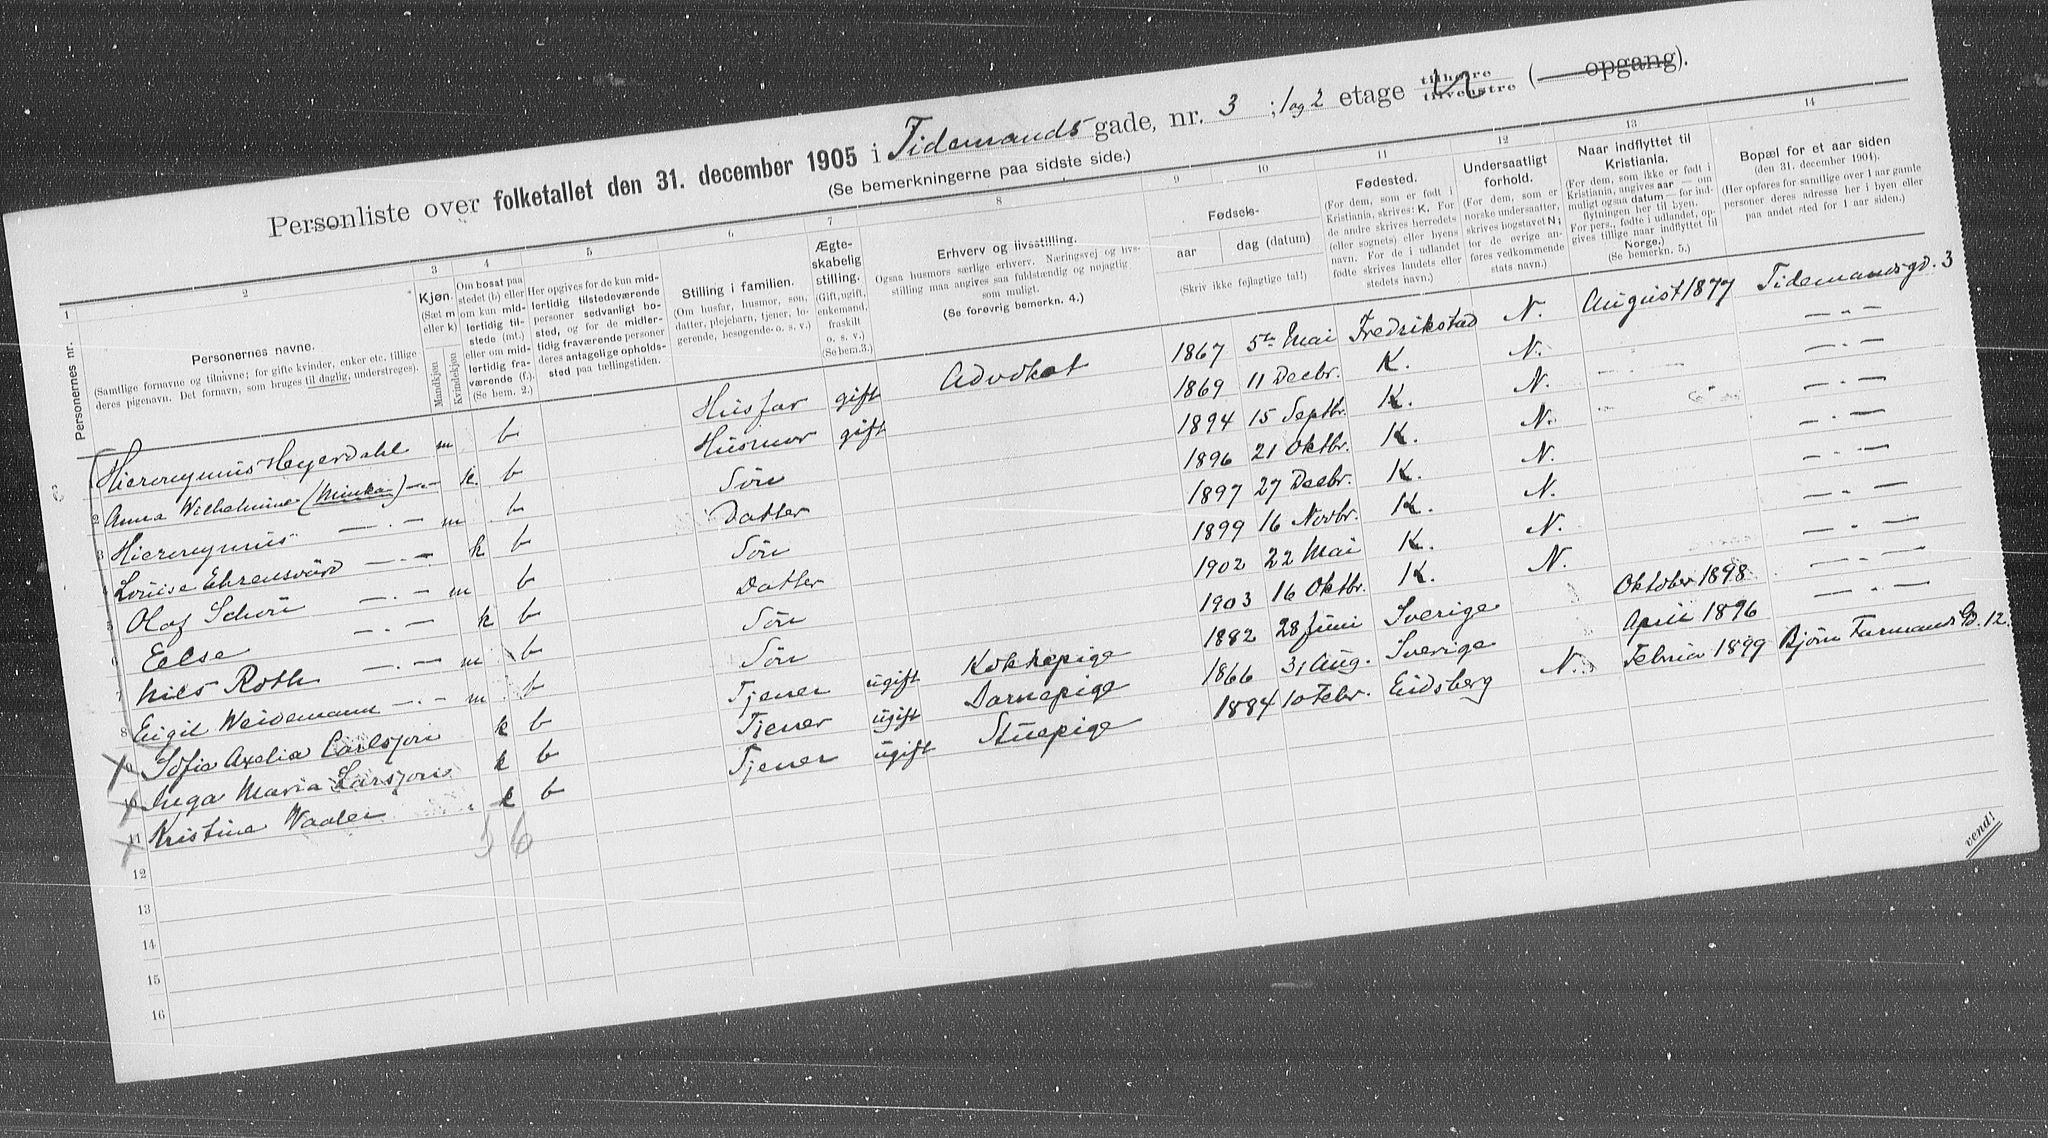 Personliste over folketallet den 31. december 1905 i Tidemands gade, nr. 3 ; 1 og 2 etage tilhøire tilvenstre ( opgang).
(Se bemerkningerne paa sidste side.)
1 2 3 4 5 6 7 8 9 10 11 12 13 14
Personernes nr.
Personernes navne.
(Samtlige fornavne og tilnavne; for gifte kvinder, enker etc. tillige deres pigenavn. Det fornavn, som bruges til daglig, understreges).
Kjøn.
(Sæt m eller k)
Mandkjøn
Kvindekjøn
Om bosat paa stedet (b) eller om kun midlertidig tilstede (mt.) eller om midlertidig fraværende (f.). (Se bem. 2.)
Her opgives for de kun midlertidig tilstedeværende personer sedvanligt bosted, og for de midlertidig fraværende personer deres antagelige opholdssted paa tællingstiden.
Stilling i familien.
(Om husfar, husmor, søn, datter, plejebarn, tjener, logerende, besøgende o. s. v.)
Ægteskabelig stilling.
(Gift, ugift, enkemand, fraskilt o. s. v.) (Se bem. 3.)
Erhverv og livsstilling.
Ogsaa husmors særlige erhverv. Næringsvej og livsstilling maa angives saa fuldstændig og nøjagtig som muligt.
(Se forøvrig bemerkn. 4.)
Fødsels-
aar
dag (datum)
(Skriv ikke fejlagtige tal!)
Fødested.
(For dem, som er født i Kristiania, skrives: K. For de andre skrives herredets (eller sognets) eller byens navn. For de i udlandet fødte skrives landets eller stedets navn.)
Undersaatligt forhold.
(For dem, som er norske undersaatter, skrives bogstavet N; for de øvrige anføres vedkommende stats navn.)
Naar indflyttet til Kristiania.
(For dem, som ikke er født i Kristiania, angives aar — om muligt ogsaa datum — for indflytningen her til byen. For pers., fødte i udlandet, opgives tillige naar indflyttet til Norge.)
(Se bemerkn. 5.)
Bopæl for et aar siden
(den 31. december 1904).
(Her opføres for samtlige over 1 aar gamle personer deres adresse her i byen eller paa andet sted for 1 aar siden.)
Hieronymus Heyerdahl m b Husfar gift Advokat 1867 5te Mai Fredrikstad N. August 1877 Tidemandsgd. 3
2 Anna Wilhelmine (Minka) —"— k. b Husmor gift 1869 11 Decbr. K. N. — " —
3 Hieronymus —"— m b Søn 1894 15 Septbr. K. N. — " —
4 Louise Ehrensvärd —"— k b Datter 1896 21 Oktbr. K. N. — " —
5 Olaf Schou —"— m b Søn 1897 27 Decbr. K. N. — " —
6 Else —"— k b Datter 1899 16 Novbr. K. N. — " —
7 Nils Roth —"— m b Søn 1902 22 Mai K. N. — " —
8 Eigil Weidemann —"— m b Søn 1903 16 Oktbr. K. N. — " —
9 Sofie Axelia Carlsson k b Tjener ugift Kokkepige 1882 28 Juni Sverige Oktober 1898 — " —
10 Inga Maria Larsson k b Tjener ugift Barnepige 1866 31 Aug. Sverige April 1896 — " —
11 Kristine Waaler k b Tjener ugift Stuepige 1884 10 Febr. Eidsberg N. Februar 1899 Bjørn Farmans Gd. 12.
5 6
12
13
14
15
16
vend!